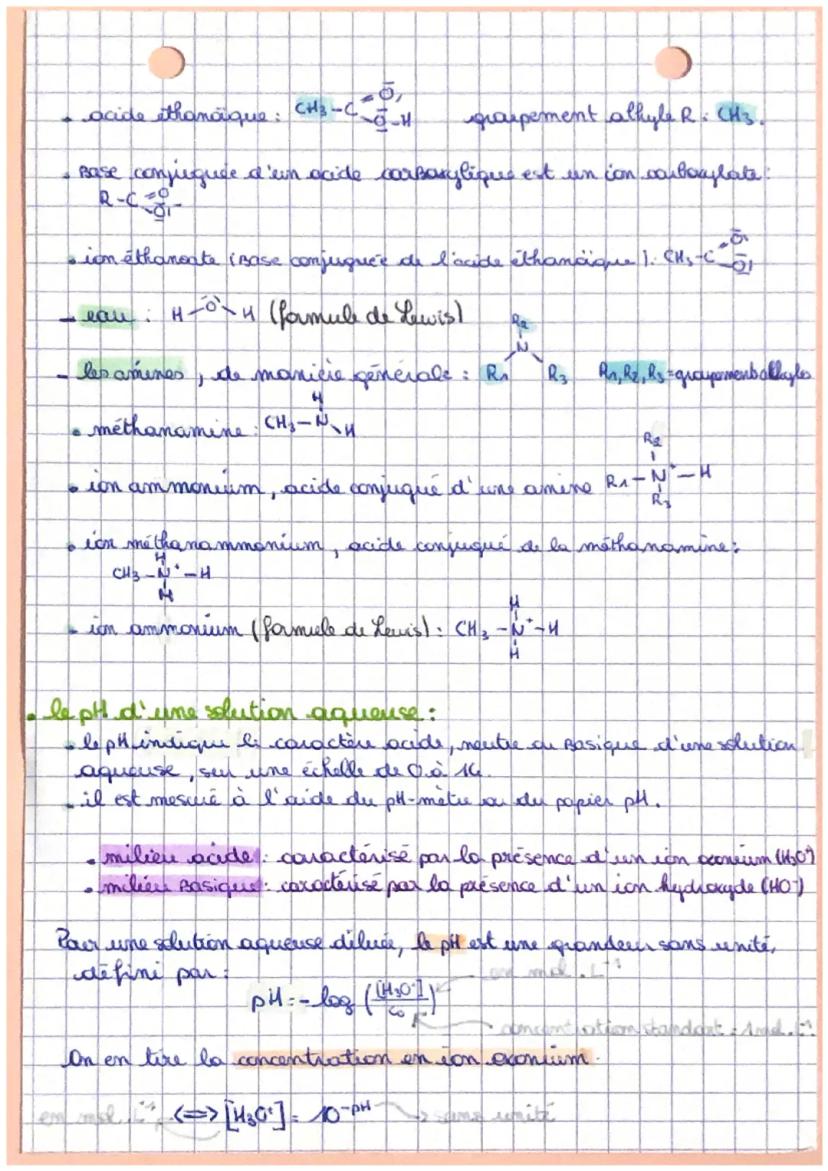 • acide éthanoïque : CH3-C=O, O-H groupement alkyle R : CH3.
• Base conjuguée d'un acide carboxylique est un ion carboxylate :
R-C=O O-
• ion éthanoate (Base conjuguée de l'acide éthanoïque). CH3-C=O O
- eau : H-O-H (formule de Lewis)
- les amines, de manière générale : R1 N R2 R3 R1, R2, R3 = groupements alkyles
• méthanamine : CH3-N-H H
• ion ammonium, acide conjugué d'une amine R1-N+-H R2 R3
• ion méthanammonium, acide conjugué de la méthanamine :
CH3-N+-H H H
- ion ammonium (formule de Lewis) : CH3-N+-H H H
• le pH d'une solution aqueuse :
• le pH indique le caractère acide, neutre ou Basique d'une solution
aqueuse, sur une échelle de 0 à 14.
- il est mesuré à l'aide du pH-mètre ou du papier pH.
• milieu acide : caractérisé par la présence d'un ion oxonium (H3O+)
• milieu Basique : caractérisé par la présence d'un ion hydroxyde (HO-)
Pour une solution aqueuse diluée, le pH est une grandeur sans unité,
défini par :
en mol.L-1
pH = - log ([H3O+]/c0)
concentration standart = 1 mol.L-1
On en tire la concentration en ion oxonium.
en mol.L-1 <=> [H3O+] = 10-pH → sans unité